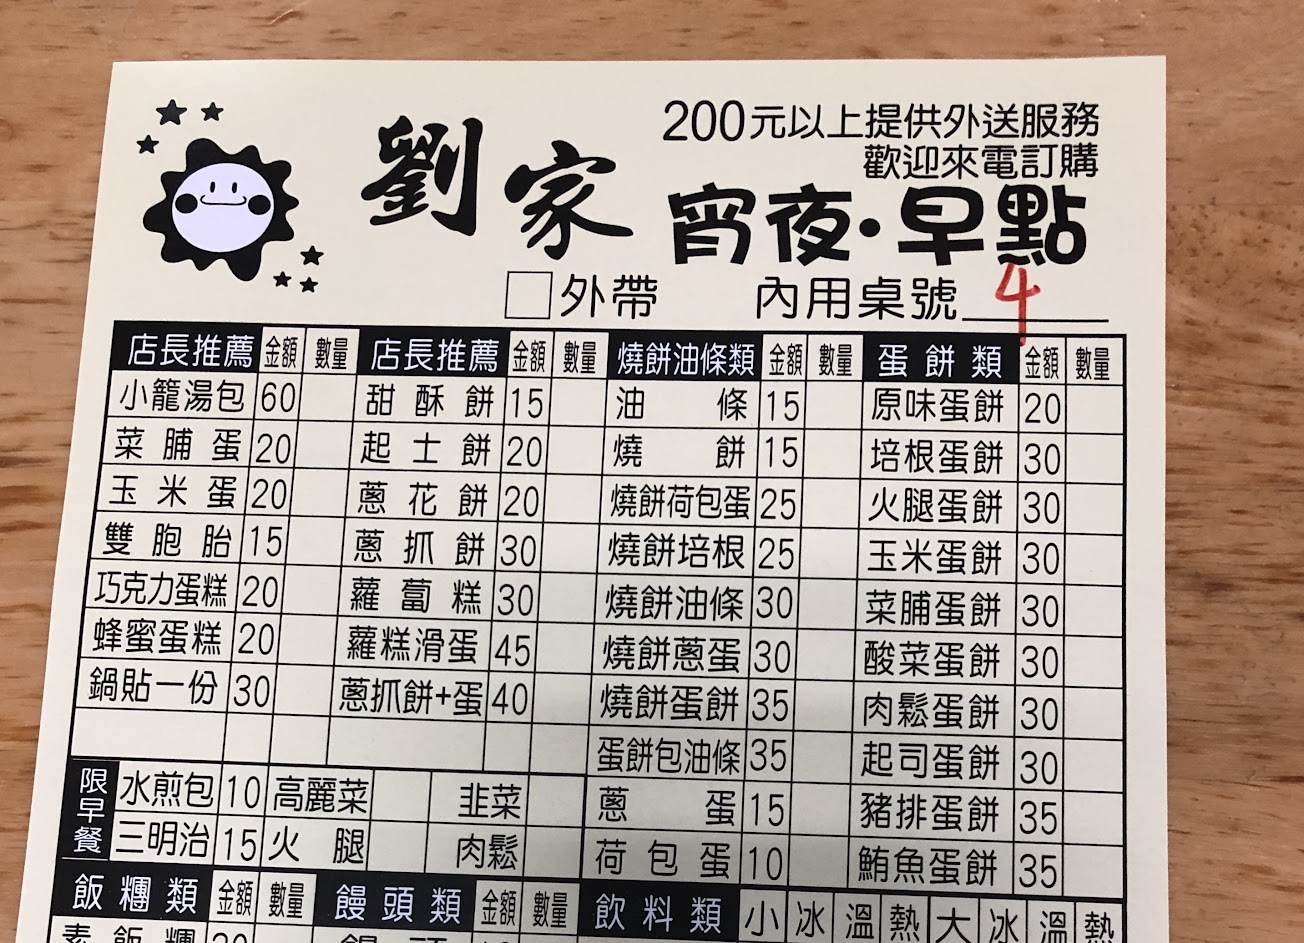 劉家
200元以上提供外送服務
歡迎來電訂購
宵夜·早點
外帶 內用桌號 4
店長推薦 金額 數量 店長推薦 金額 數量 燒餅油條類 金額 數量 蛋餅類 金額 數量
小籠湯包 60 甜酥餅 15 油條 15 原味蛋餅 20
菜脯蛋 20 起士餅 20 燒餅 15 培根蛋餅 30
玉米蛋 20 蔥花餅 20 燒餅荷包蛋 25 火腿蛋餅 30
雙胞胎 15 蔥抓餅 30 燒餅培根 25 玉米蛋餅 30
巧克力蛋糕 20 蘿蔔糕 30 燒餅油條 30 菜脯蛋餅 30
蜂蜜蛋糕 20 蘿糕滑蛋 45 燒餅蔥蛋 30 酸菜蛋餅 30
鍋貼一份 30 蔥抓餅+蛋 40 燒餅蛋餅 35 肉鬆蛋餅 30
蛋餅包油條 35 起司蛋餅 30
限早餐 水煎包 10 高麗菜 韭菜 蔥蛋 15 豬排蛋餅 35
三明治 15 火腿 肉鬆 荷包蛋 10 鮪魚蛋餅 35
飯糰類 金額 數量 饅頭類 金額 數量 飲料類 小 冰 溫 熱 大 冰 溫 熱
素飯糰 饅頭